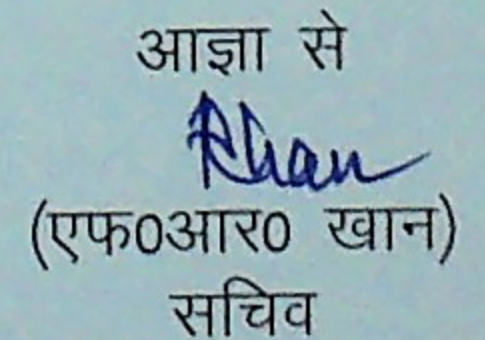 आज्ञा से
Rhan
(एफ0आर0 खान)
सचिव